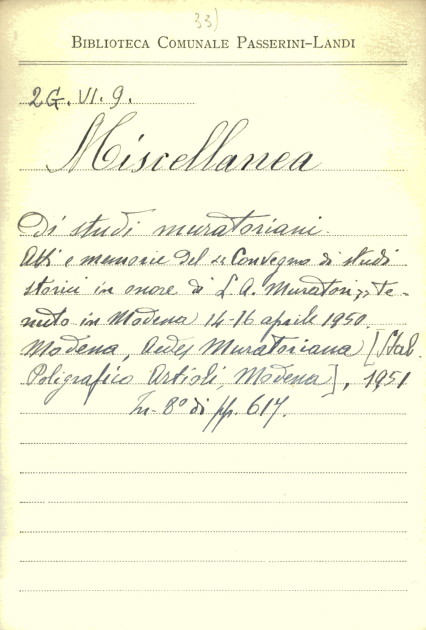 33)
BIBLIOTECA COMUNALE PASSERINI-LANDI
2G. VI. 9.
Miscellanea
Di studi muratoriani.
Atti e memorie del «Convegno di studi
storici in onore di L. A. Muratori» te-
nuto in Modena 14-16 aprile 1950.
Modena, Aedes Muratoriana [Stab.
Poligrafico Artioli, Modena], 1951
In-8° di pp. 617.